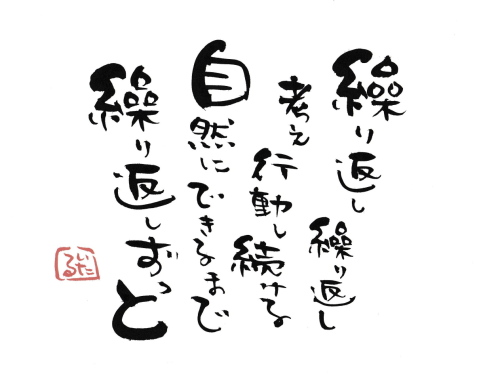 繰り返し
繰り返し
考え
行動し
続ける
自然にできるまで
繰り返しずっと